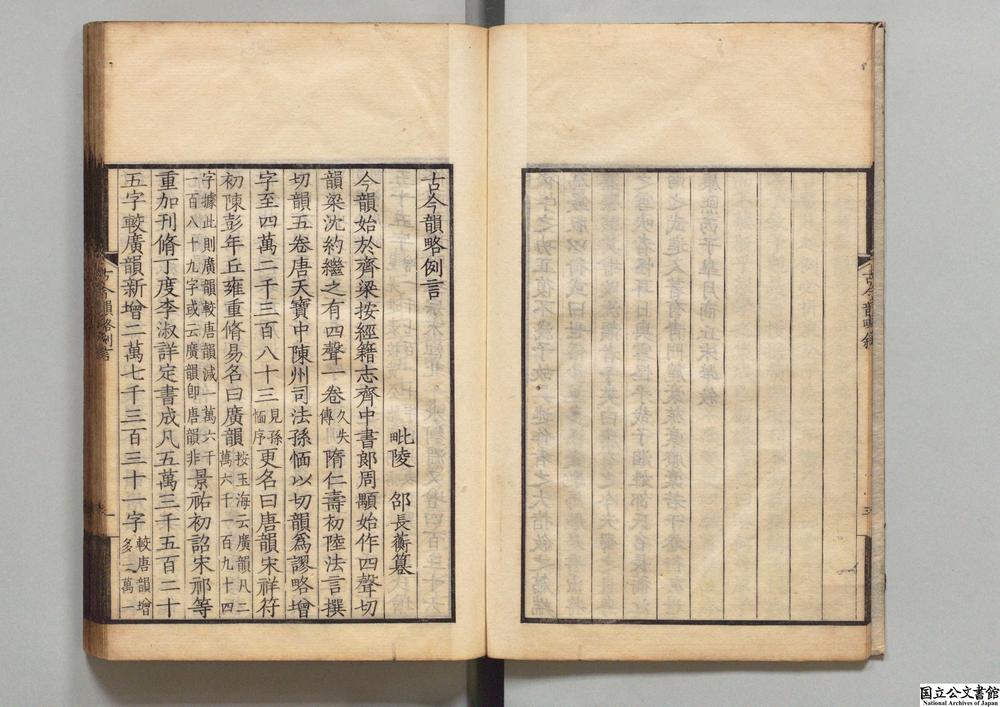 古今韻略敘
三
古今韻略例言
毗陵 邵長蘅纂
今韻始於齊梁按經籍志齊中書郎周顒始作四聲切
韻梁沈約繼之有四聲一卷久失傳隋仁壽初陸法言撰
切韻五卷唐天寶中陳州司法孫愐以切韻爲謬略增
字至四萬二千三百八十三見孫愐序更名曰唐韻宋祥符
初陳彭年丘雍重脩易名曰廣韻按玉海云廣韻凡二萬六千一百九十四
字據此則廣韻較唐韻減一萬六千一百八十九字或云廣韻卽唐韻非景祐初詔宋祁等
重加刊脩丁度李淑詳定書成凡五萬三千五百二十
五字較廣韻新增二萬七千三百三十一字較唐韻增多一萬一
古今韻略例言
一
国立公文書館
National Archives of Japan